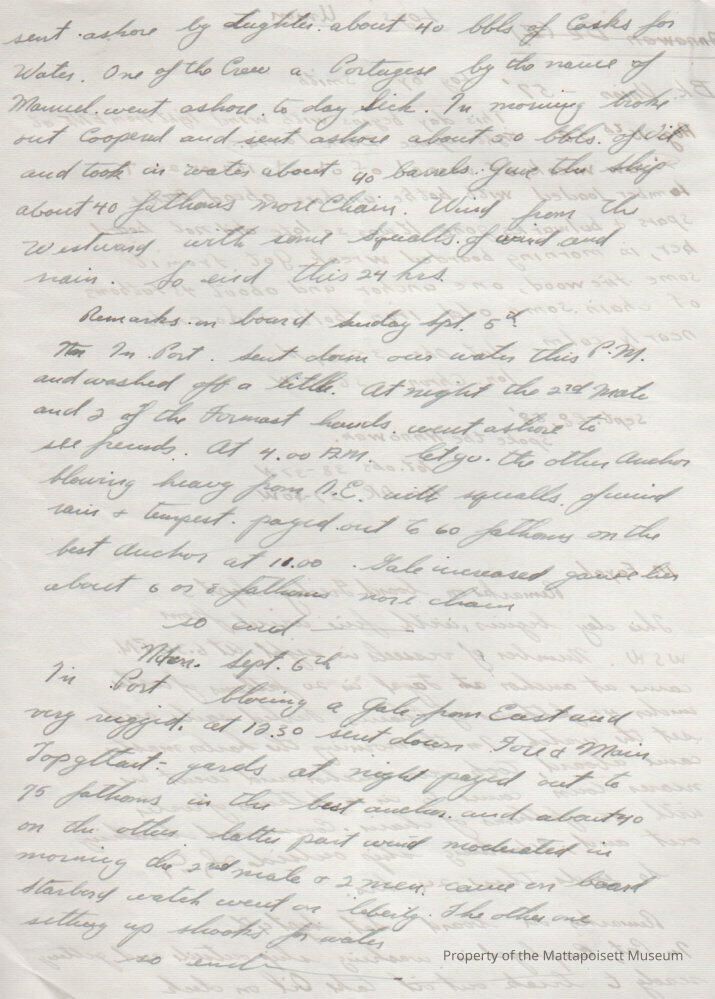 sent ashore by Lughter about 40 bbls of Casks for
Water. One of the Crew a Portagese by the name of
Manuel went ashore to day Sick. In morning broke
out Cooperd and sent ashore about 50 bbls. of
and took in water about 40 barrels. Gave the ship
about 40 fathoms more Chain. Wind from the
Westward, with some squalls of wind and
rain. So end this 24 hrs.
Remarks on board Sunday Spt. 5th
In Port. sent down our water this P.M.
and washed off a little. At night the 2nd Mate
and 2 of the Formast hands went ashore to
see friends. At 4.00 A.M. let go the other Anchor
blowing heavy from N.E. with squalls of wind
rain & tempest. payed out to 60 fathoms on the
best Anchor at 11.00 Gale increased gave her
about 6 or 8 fathoms more chain
so end
Mon. Sept. 6th
In Port blowing a Gale from East and
very rugged. at 12.30 sent down Fore & Main
Topgllant- yards at night payed out to
75 fathoms in the best anchor and about 40
on the other. latter part wind moderated in
morning the 2nd mate & 2 men came on board
Starbord watch went on liberty. The other one
setting up shooks for water
so end
Property of the Mattapoisett Museum